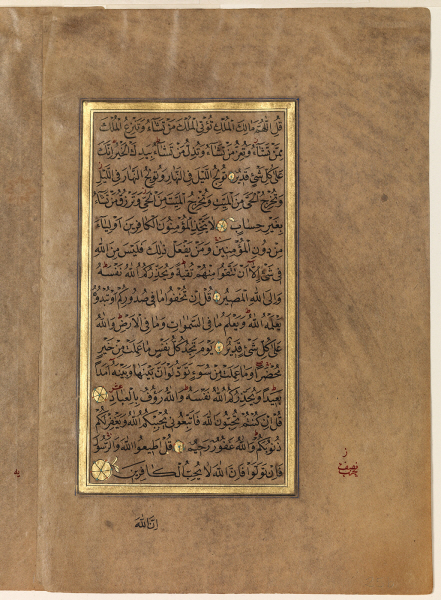 قُلِ اللّٰهُمَّ مَالِكَ الْمُلْكِ تُؤْتِي الْمُلْكَ مَنْ تَشَاءُ وَتَنْزِعُ الْمُلْكَ
مِمَّنْ تَشَاءُ وَتُعِزُّ مَنْ تَشَاءُ وَتُذِلُّ مَنْ تَشَاءُ بِيَدِكَ الْخَيْرُ اِنَّكَ
عَلٰى كُلِّ شَيْءٍ قَدِيرٌ تُولِجُ اللَّيْلَ فِي النَّهَارِ وَتُولِجُ النَّهَارَ فِي اللَّيْلِ
وَتُخْرِجُ الْحَيَّ مِنَ الْمَيِّتِ وَتُخْرِجُ الْمَيِّتَ مِنَ الْحَيِّ وَتَرْزُقُ مَنْ تَشَاءُ
بِغَيْرِ حِسَابٍ لَا يَتَّخِذِ الْمُؤْمِنُونَ الْكَافِرِينَ اَوْلِيَاءَ
مِنْ دُونِ الْمُؤْمِنِينَ وَمَنْ يَفْعَلْ ذٰلِكَ فَلَيْسَ مِنَ اللّٰهِ
فِي شَيْءٍ اِلَّا اَنْ تَتَّقُوا مِنْهُمْ تُقٰيةً وَيُحَذِّرُكُمُ اللّٰهُ نَفْسَهُ
وَاِلَى اللّٰهِ الْمَصِيرُ قُلْ اِنْ تُخْفُوا مَا فِي صُدُورِكُمْ اَوْ تُبْدُوهُ
يَعْلَمْهُ اللّٰهُ وَيَعْلَمُ مَا فِي السَّمٰوَاتِ وَمَا فِي الْاَرْضِ وَاللّٰهُ
عَلٰى كُلِّ شَيْءٍ قَدِيرٌ يَوْمَ تَجِدُ كُلُّ نَفْسٍ مَا عَمِلَتْ مِنْ خَيْرٍ
مُحْضَرًا وَمَا عَمِلَتْ مِنْ سُوءٍ تَوَدُّ لَوْ اَنَّ بَيْنَهَا وَبَيْنَهُ اَمَدًا
بَعِيدًا وَيُحَذِّرُكُمُ اللّٰهُ نَفْسَهُ وَاللّٰهُ رَؤُفٌ بِالْعِبَادِ
قُلْ اِنْ كُنْتُمْ تُحِبُّونَ اللّٰهَ فَاتَّبِعُونِي يُحْبِبْكُمُ اللّٰهُ وَيَغْفِرْ لَكُمْ
ذُنُوبَكُمْ وَاللّٰهُ غَفُورٌ رَحِيمٌ قُلْ اَطِيعُوا اللّٰهَ وَالرَّسُولَ
فَاِنْ تَوَلَّوْا فَاِنَّ اللّٰهَ لَا يُحِبُّ الْكَافِرِينَ
نصف
حزب
اِنَّ اللّٰهَ